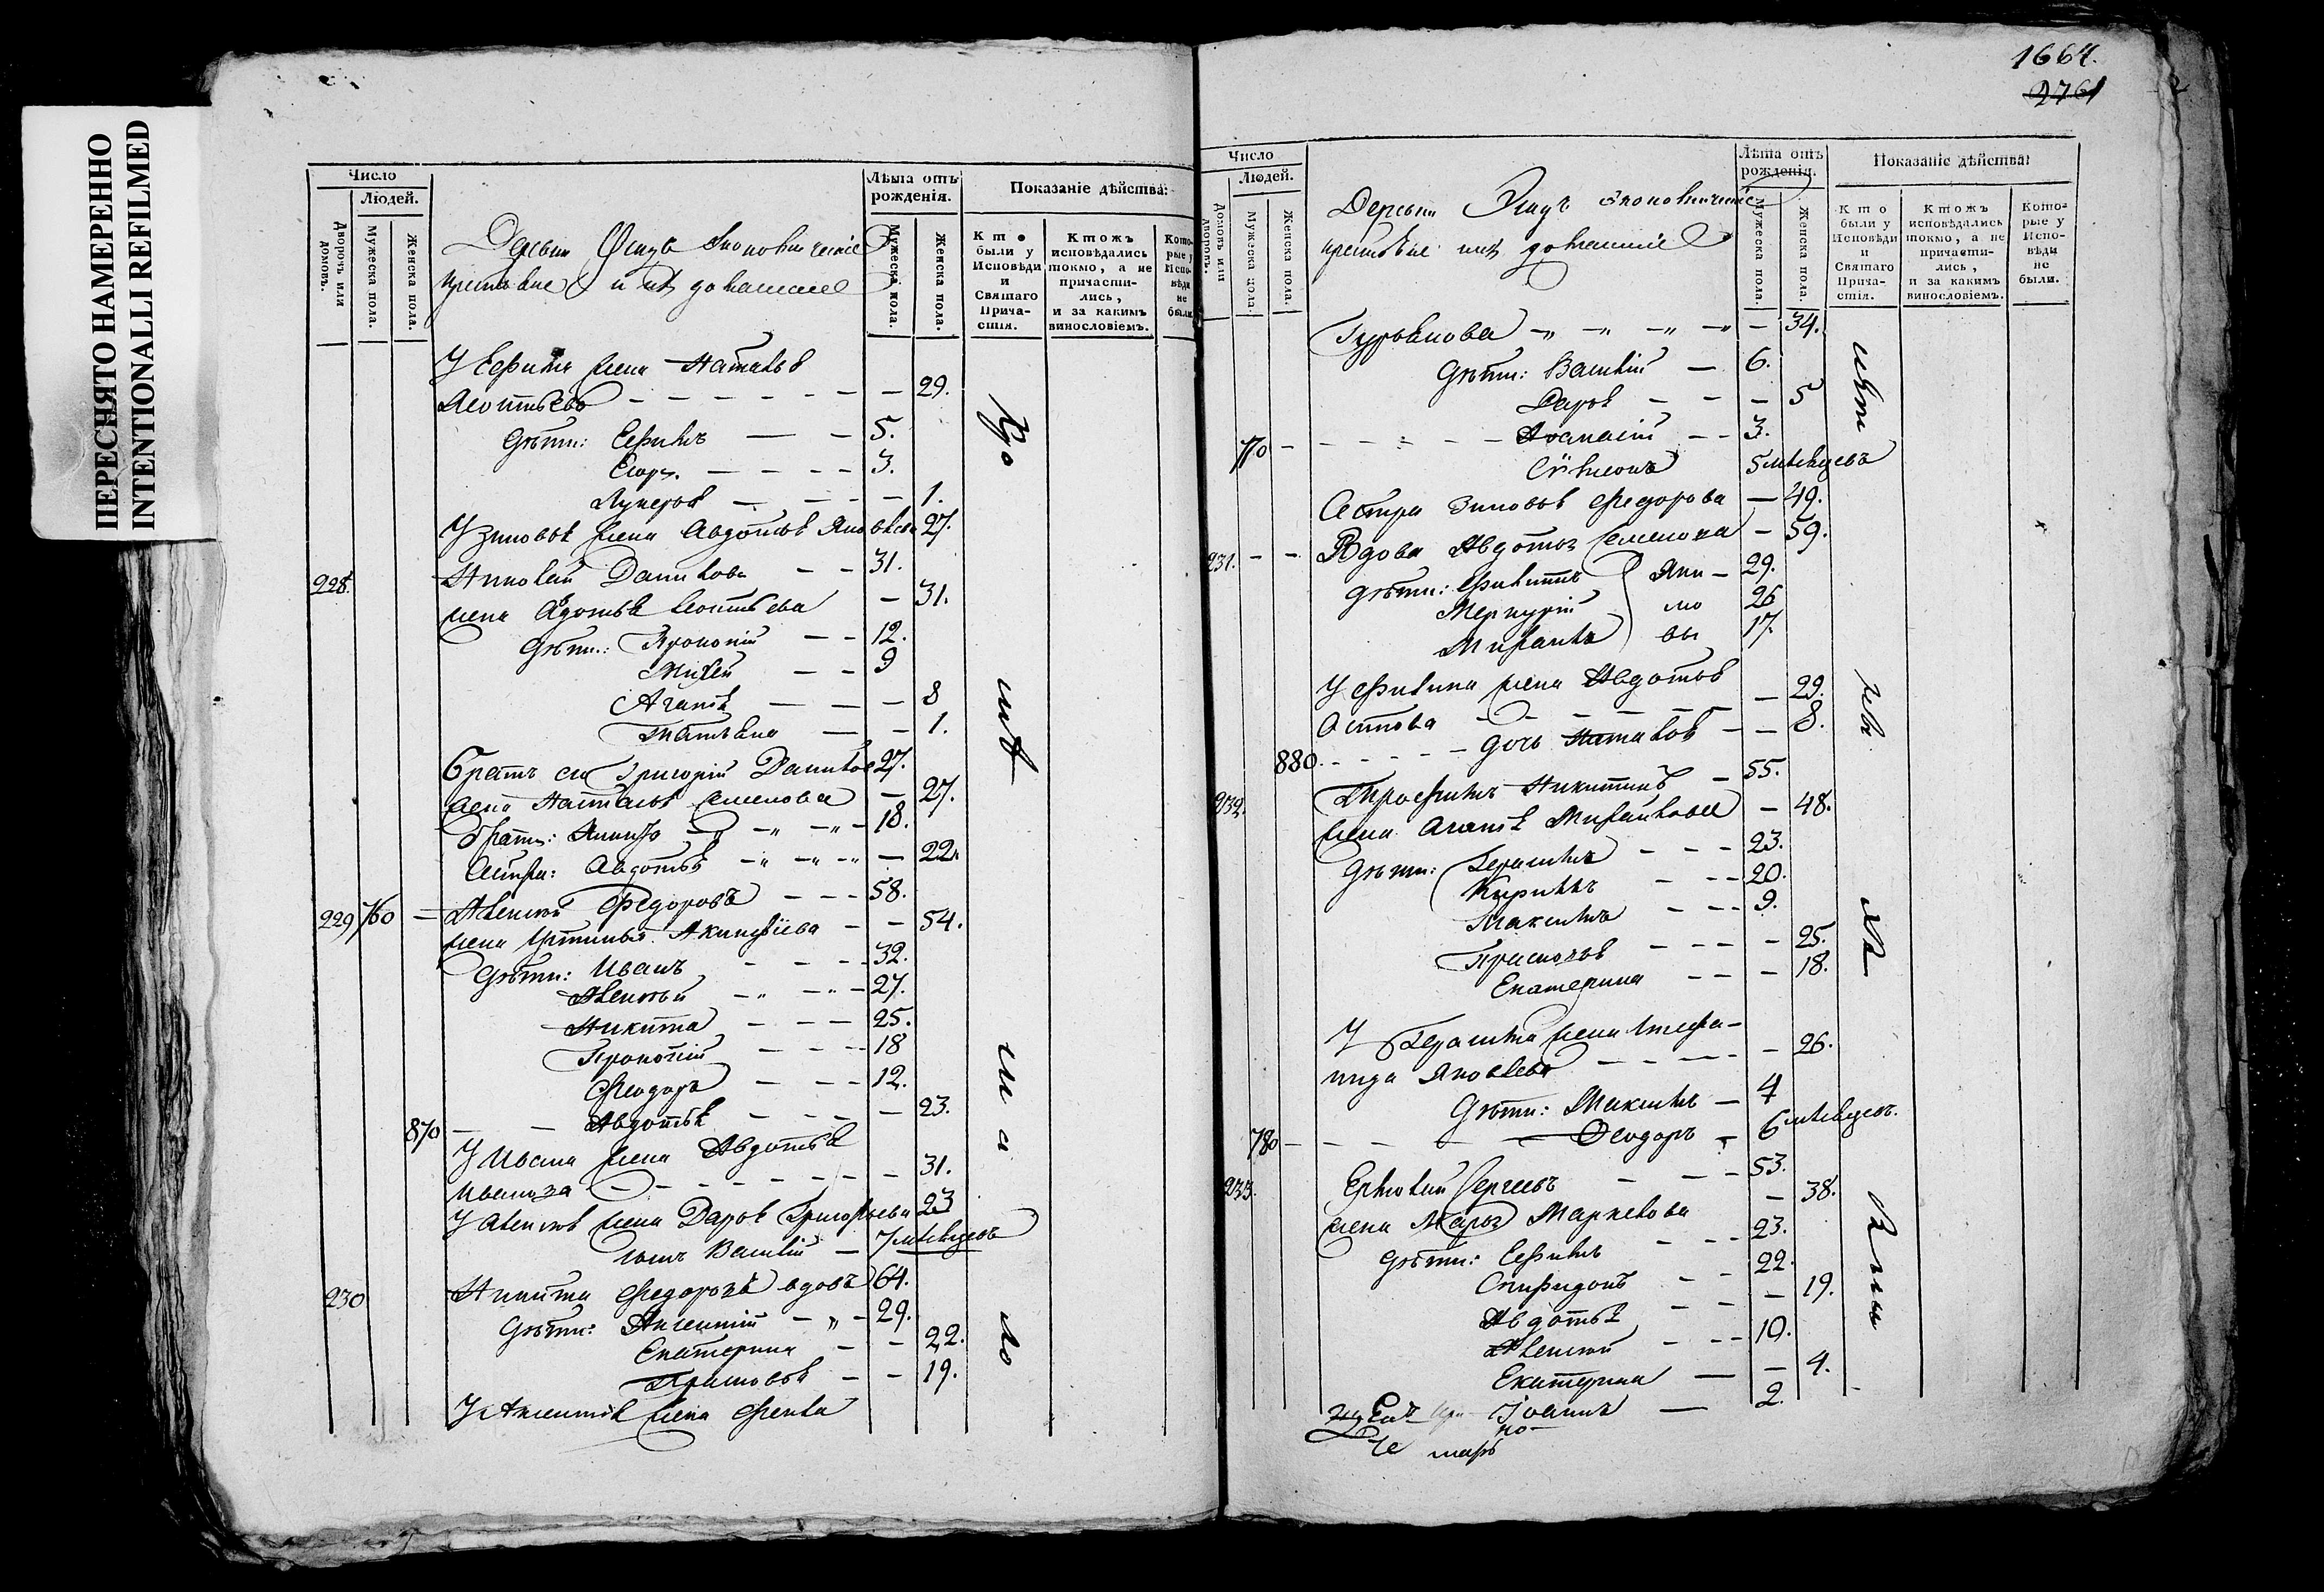 ПЕРЕСНЯТО НАМЕРЕННО
INTENTIONALLI REFILMED
Число
Людей.
Дворочъ или домовъ.
Мужеска пола.
Женска пола.
Лѣта отъ рожденія.
Мужеска пола.
Женска пола.
Показаніе дѣйства:
Кто были у Исповѣди и Святаго Причастія.
Ктожъ исповѣдались токмо, а не причастились, и за какимъ винословіемъ.
Которые у Исповѣди не были.
Деревни
крестьяне и ихъ домашніе
У Ефима жена Наталья
Леонтьева — 29.
Дѣти: Ефимъ — 5.
Егоръ — 3.
Лукерья — 1.
У Зиновья жена Авдотья 27.
228. Данилова — 31.
жена Авдотья Леонтьева — 31.
Дѣти: Прокопій — 12.
Михей — 9
Агафья — 8
Татьяна — 1.
Братъ его Григорій Данилов 27.
жена Наталья Семенова — 27.
братъ: — 18.
Сестра: Авдотья — 22.
229 760 — Алексѣй Федоровъ — 58.
жена Устинья Акинфіева — 54.
Дѣти: Иванъ — 32.
Алексѣй — 27.
Никита — 25.
Прокопій — 18
Феодоръ — 12.
870 — Авдотья — 23.
У Ивана жена Авдотья
Иванова — 31.
У Алексѣя жена Дарья Григорьева 23
сынъ Василій — 7 мѣсяцовъ
230 Никита Федоровъ вдовъ 64.
Дѣти: Аксентій — 29.
Екатерина — 22.
Прасковья — 19.
У Аксентія жена Фекла
1664.
2761
Число
Людей.
Домовъ или дворовъ.
Мужеска пола.
Женска пола.
Лѣта отъ рожденія.
Мужеска пола.
Женска пола.
Показаніе дѣйства:
Кто были у Исповѣди и Святаго Причастія.
Ктожъ исповѣдались токмо, а не причастились, и за какимъ винословіемъ.
Которые у Исповѣди не были.
Деревни
крестьяне ихъ домашніе
Гурьянова — 34.
Дѣти: Василій — 6.
Дарья — 5
770 — Аѳанасій — 3.
Сѵмеонъ 5 мѣсяцовъ
Сестра Зиновья Федорова — 49.
231. — Вдова Авдотья Семенова — 59.
Дѣти: Филиппъ Яки — 29.
Меркурій мо 26
Михаилъ вы 17.
У Филипа жена Авдотья
— 29.
880. — дочь Наталья — 8.
232. Трофимъ Никитинъ — 55.
жена Агафья Михайлова — 48.
Дѣти: Герасимъ — 23.
Кирилъ — 20.
Максимъ — 9.
Прасковья — 25.
Екатерина — 18.
У Герасима жена Степа-
нида Яковлева — 26.
Дѣти: Максимъ — 4
780 — Ѳеодоръ — 6 мѣсяцовъ.
233. Ермолай Сергѣевъ — 53.
жена Марья Маркелова — 38.
Дѣти: Ефимъ — 23.
Спиридонъ — 22.
Авдотья — 19.
Алексѣй — 10.
Екатерина — 4.
Іоаннъ — 2.